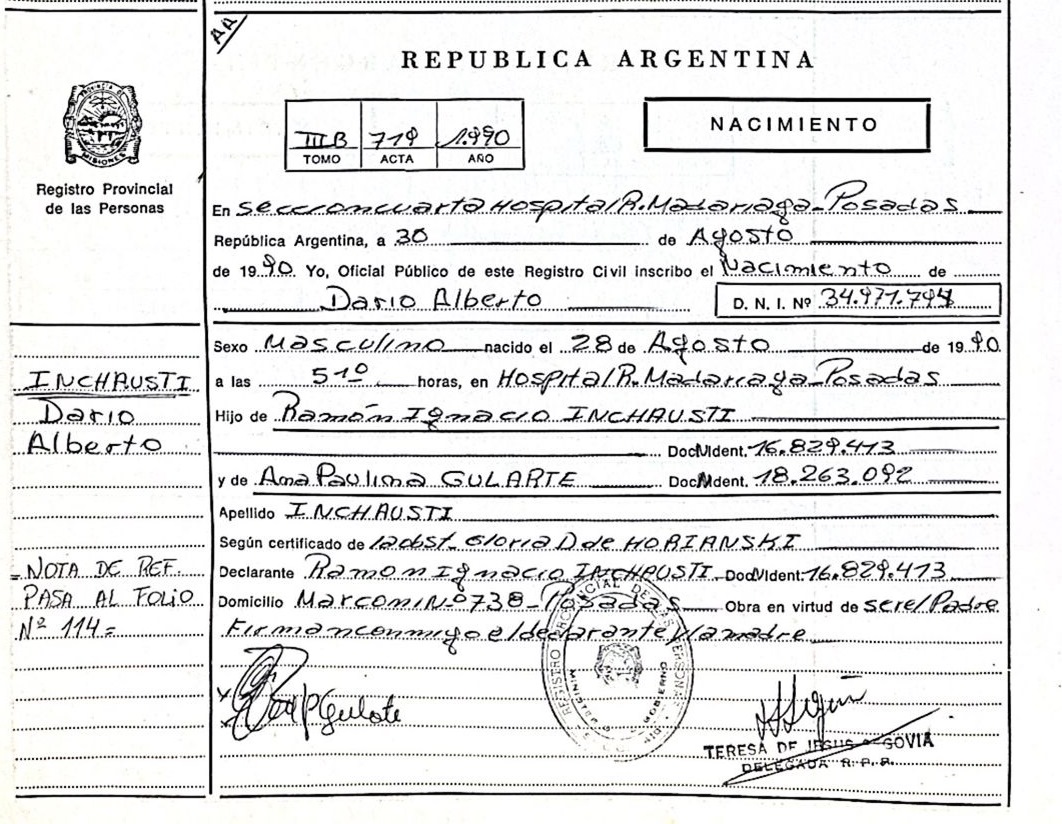 AA
REPUBLICA ARGENTINA
PROVINCIA DE MISIONES
Registro Provincial
de las Personas
III B 719 1.990
TOMO ACTA AÑO
NACIMIENTO
En seccion cuarta Hospital R. Madariaga - Posadas
República Argentina, a 30 de Agosto
de 1990 Yo, Oficial Público de este Registro Civil inscribo el Nacimiento de
Dario Alberto D. N. I. Nº 34.977.794
Sexo Masculino nacido el 28 de Agosto de 1990
a las 5 10 horas, en Hospital R. Madariaga - Posadas
Hijo de Ramón Ignacio INCHAUSTI
Doc. Ident. 16.829.413
y de Ana Paulina GULARTE Doc. Ident. 18.263.092
Apellido INCHAUSTI
Según certificado de la obst. Gloria D de HORIANSKI
Declarante Ramon Ignacio INCHAUSTI Doc. Ident. 16.829.413
Domicilio Marconi Nº 0738 - Posadas Obra en virtud de ser el Padre
Firman conmigo el declarante y la madre
INCHAUSTI
Dario
Alberto
= NOTA DE REF.
PASA AL FOLIO
Nº 114 =
REGISTRO PROVINCIAL DE LAS PERSONAS
MINISTERIO DE GOBIERNO
TERESA DE JESUS SEGOVIA
DELEGADA R. P. P.